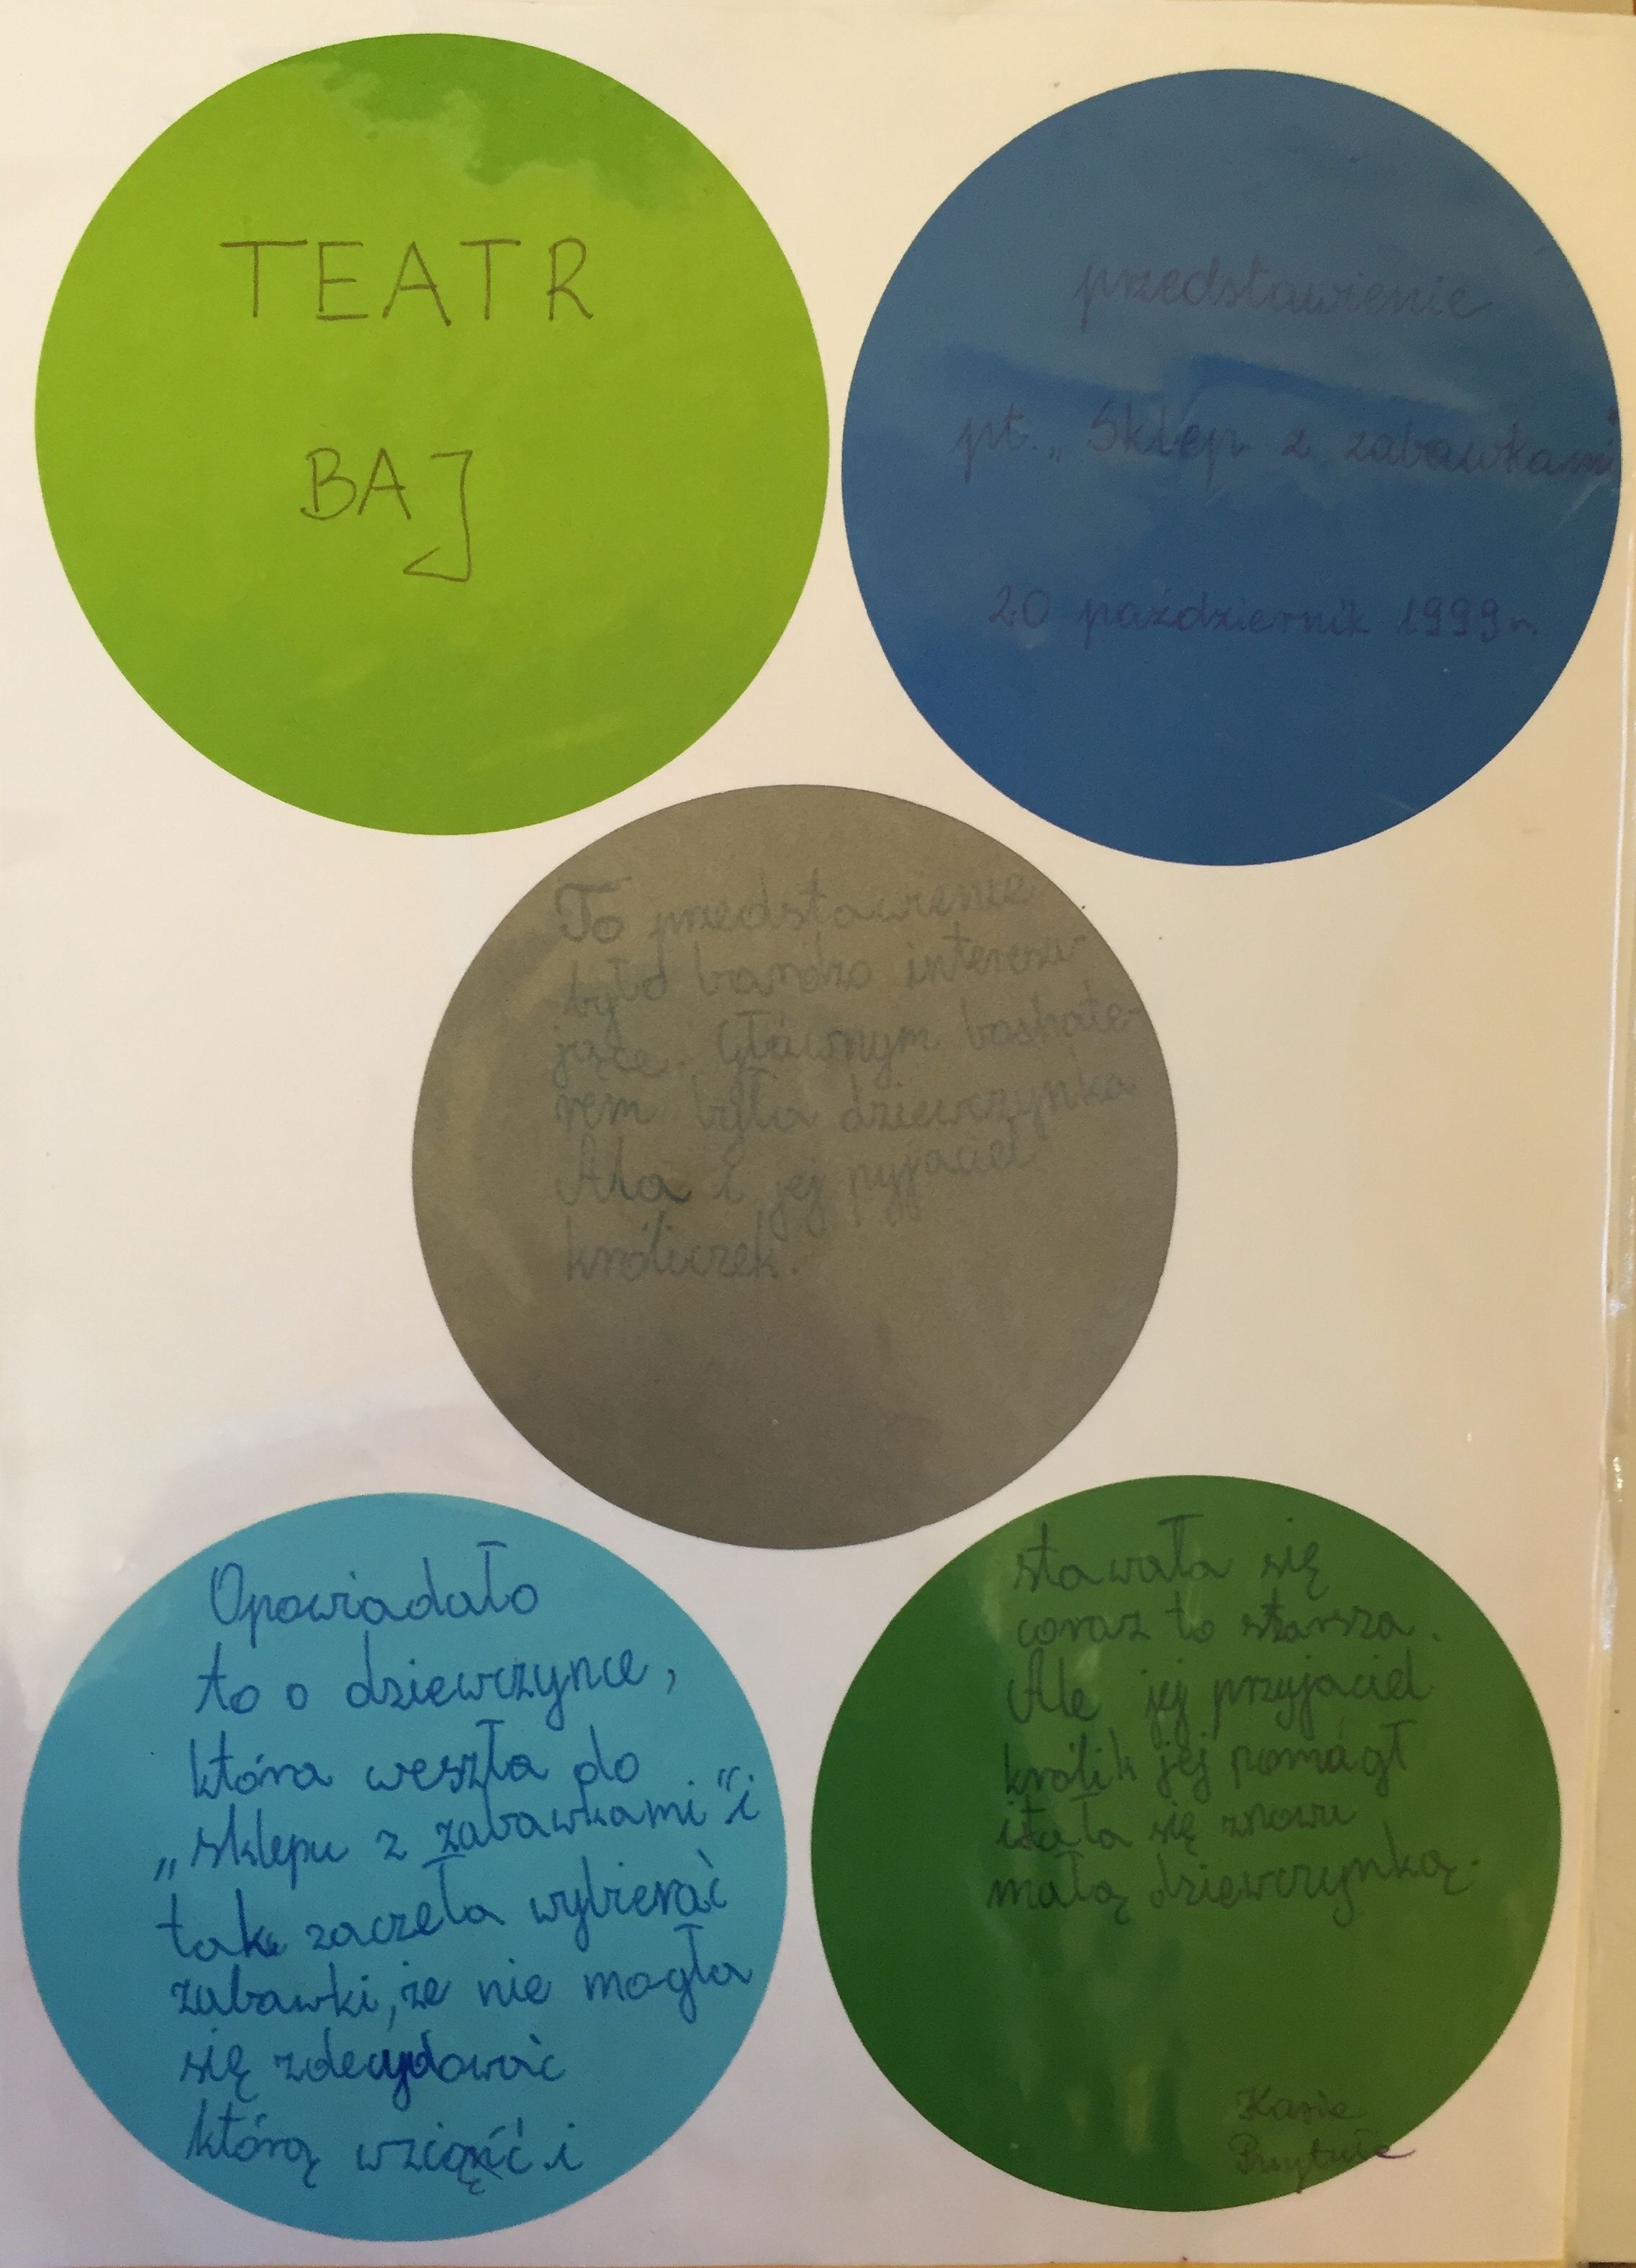 TEATR
BAJ
przedstawienie
pt. „Sklep z zabawkami"
20 październik 1999 r.
To przedstawienie
było bardzo interesu-
jące. Głównym boshate-
rem była dziewczynka
Ala i jej pyjaciel
króliczek.
Opowiadało
to o dziewczynce,
która weszła do
„sklepu z zabawkami" i
tak zaczęła wybierać
zabawki, że nie mogła
się zdecydować
którą wziąść i
stawała się
coraz to starsza.
Ale jej przyjaciel
królik jej pomógł
i stała się znowu
małą dziewczynką.
Kasia